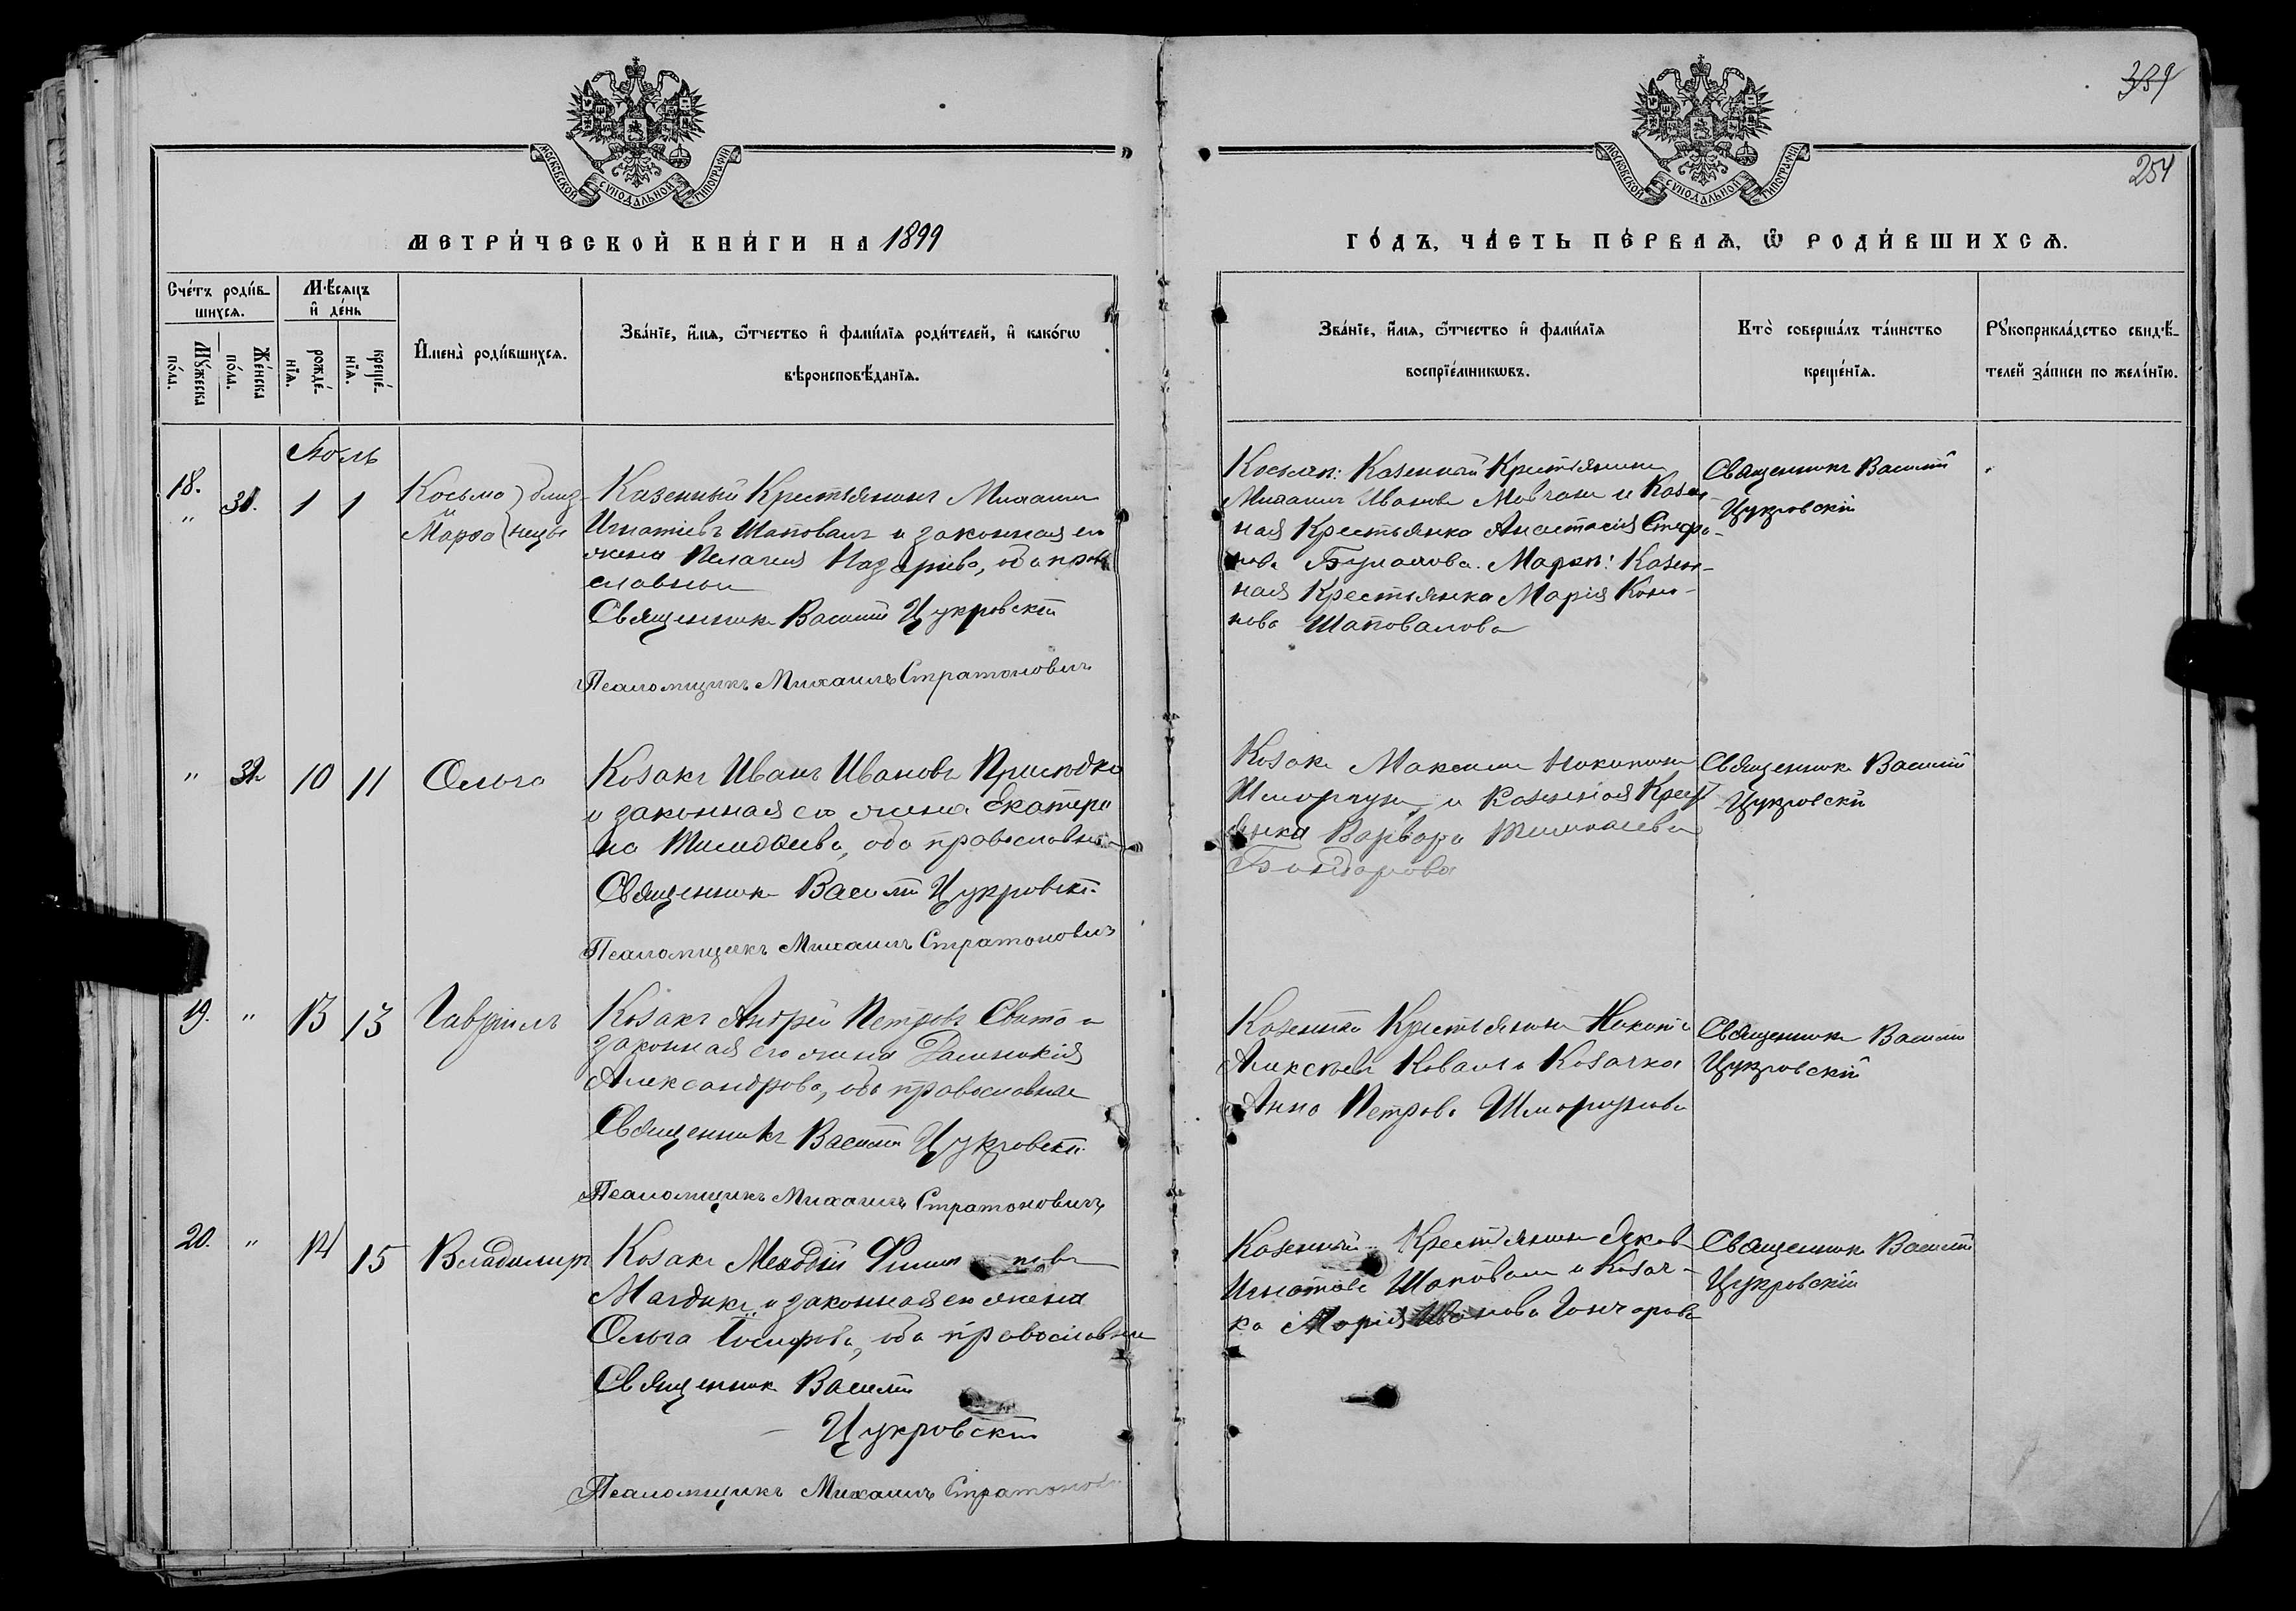 339
254
МОСКОВСКОЙ СѴНОДАЛЬНОЙ ТИПОГРАФІИ
МОСКОВСКОЙ СѴНОДАЛЬНОЙ ТИПОГРАФІИ
МЕТРИ́ЧЕСКОЙ КНИ́ГИ НА 1899
ГО́ДЪ, ЧА́СТЬ ПЕ́РВАѦ, Ѿ РОДИ́ВШИХСѦ.
Сче́тъ роди́в-
шихсѧ.
Мꙋ́жеска
по́ла.
Же́нска
по́ла.
Мѣ́сѧцъ
и҆ де́нь
рожде́-
нїѧ.
креще́-
нїѧ.
И҆мена̀ роди́вшихсѧ.
Зва́нїе, и҆́мѧ, ѻ҆́тчество и҆ фами́лїѧ роди́телей, и҆ како́гѡ
вѣроисповѣ́данїѧ.
Зва́нїе, и҆́мѧ, ѻ҆́тчество и҆ фами́лїѧ
воспрїе́мникѡвъ.
Кто̀ соверша́лъ та́инство
креще́нїѧ.
Рꙋкоприкла́дство свидѣ́-
телей за́писи по жела́нїю.
Іюль
18. 31. 1 1
Косьма } близ-
и
Марѳа } нецы
Казенный Крестьянинъ Михаилъ
Игнатіевъ Шаповалъ и законная его
жена Пелагея Назарьева, оба право
славные
Священникъ Василій Цукровскій
Псаломщикъ Михаилъ Стратоновичъ
Казенный Крестьянинъ
Михаилъ Ивановъ Мовчанъ и Казен-
ная Крестьянка Анастасія Стефа-
нова Казен-
ная Крестьянка Марія Коно-
нова Шаповалова
Священникъ Василій
Цукровскій
" 32. 10 11 Ольга
Козакъ Иванъ Ивановъ Приходко
и законная его жена Екатери
на Тимоѳеева, оба православные
Священникъ Василій Цукровскій
Псаломщикъ Михаилъ Стратоновичъ
Козакъ Максимъ
Шморгунъ и Казенная Крест
янка Варвара
Бондарова
Священникъ Василій
Цукровскій
19. " 13 13 Гавріилъ
Козакъ Андрей Петровъ Свато и
законная его жена Домникія
Александрова, оба православные
Священникъ Василій Цукровскій
Псаломщикъ Михаилъ Стратоновичъ
Казенный Крестьянинъ
Алексѣевъ Коваль и Козачка
Анна Петрова Шморгунова
Священникъ Василій
Цукровскій
20. " 14 15 Владимиръ
Козакъ Меѳодій Филипповъ
и законная его жена
Ольга Іосифова, оба православные
Священникъ Василій
Цукровскій
Псаломщикъ Михаилъ Стратонович
Казенный Крестьянинъ Яковъ
Игнатовъ Шаповалъ и Козач-
ка Марія Иванова Гончарова
Священникъ Василій
Цукровскій